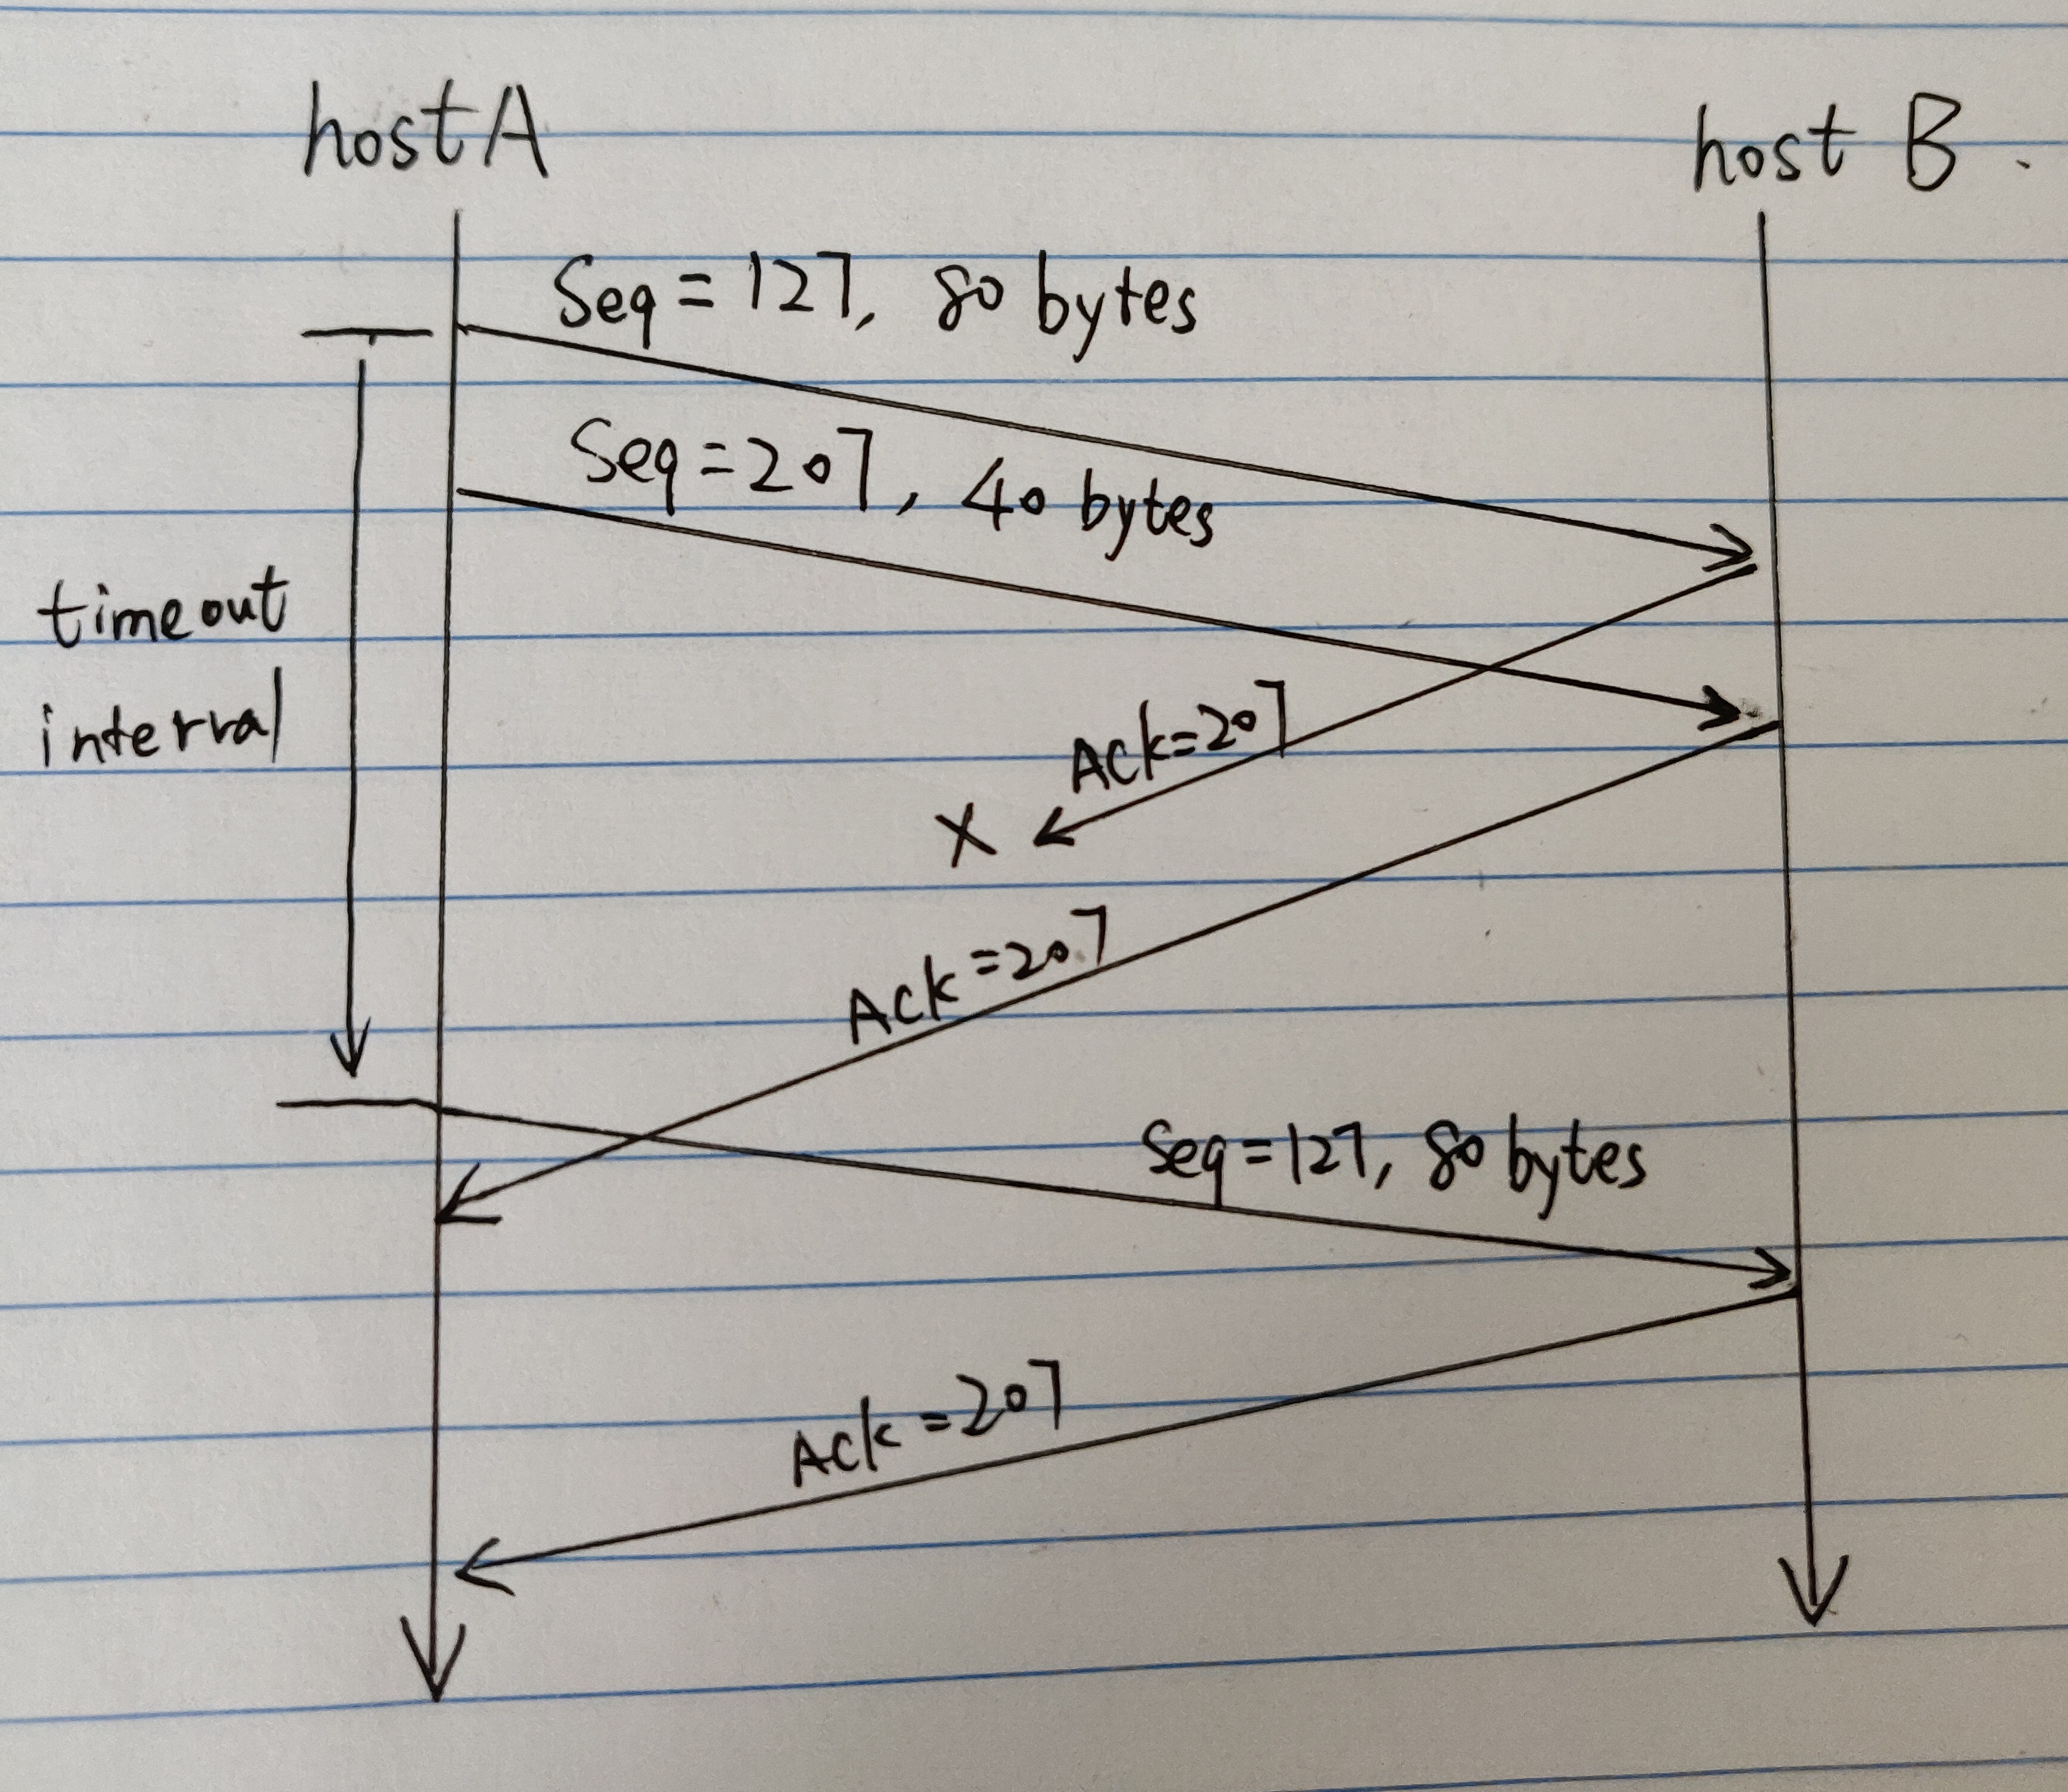 host A
host B.
Seq = 127, 80 bytes
Seq = 207, 40 bytes
timeout
interval
Ack=207
X
Ack=207
Seq=127, 80 bytes
Ack=207